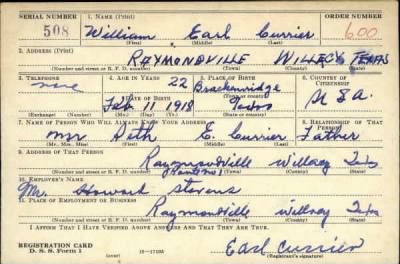 SERIAL NUMBER 1. NAME (Print) ORDER NUMBER
508 William Earl Currier 600
(First) (Middle) (Last)
2. ADDRESS (Print)
RAYMONDVILLE WILLACY TEXAS
(Number and street or R. F. D. number) (Town) (County) (State)
3. TELEPHONE 4. AGE IN YEARS 5. PLACE OF BIRTH 6. COUNTRY OF CITIZENSHIP
none 22 Breckenridge
DATE OF BIRTH (Town or county)
Feb 11 1918 Texas U.S.A.
(Exchange) (Number) (Mo.) (Day) (Yr.) (State or country)
7. NAME OF PERSON WHO WILL ALWAYS KNOW YOUR ADDRESS 8. RELATIONSHIP OF THAT PERSON
Mr Seth E. Currier Father
(Mr., Mrs., Miss) (First) (Middle) (Last)
9. ADDRESS OF THAT PERSON
Raymondville Willacy Tex
(Number and street or R. F. D. number) (Town) (County) (State)
10. EMPLOYER'S NAME
Mr. Howard Stevens
11. PLACE OF EMPLOYMENT OR BUSINESS
Raymondville Willacy Tex
(Number and street or R. F. D. number) (Town) (County) (State)
I AFFIRM THAT I HAVE VERIFIED ABOVE ANSWERS AND THAT THEY ARE TRUE.
REGISTRATION CARD
D. S. S. Form 1 Earl Currier
(Registrant's signature)